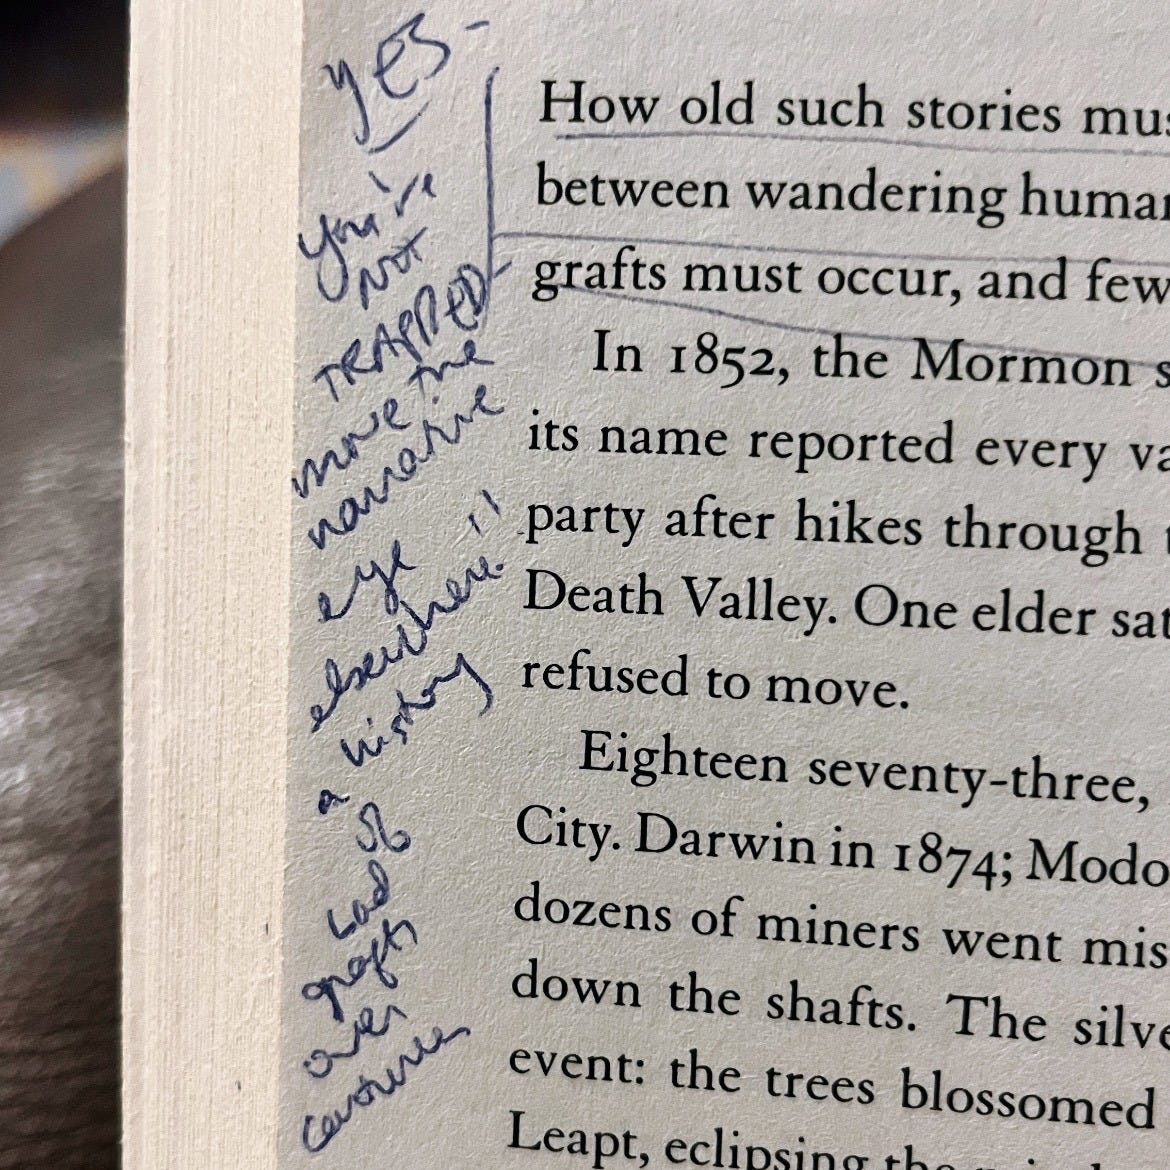 YES-
you're
NOT
TRAPPED-
move the
narrative
eye
elsewhere!!
a history
of
bad
grafts
over
centuries
How old such stories mus
between wandering human
grafts must occur, and few
In 1852, the Mormon s
its name reported every va
party after hikes through t
Death Valley. One elder sat
refused to move.
Eighteen seventy-three,
City. Darwin in 1874; Modo
dozens of miners went mis
down the shafts. The silve
event: the trees blossomed
Leapt, eclipsing the